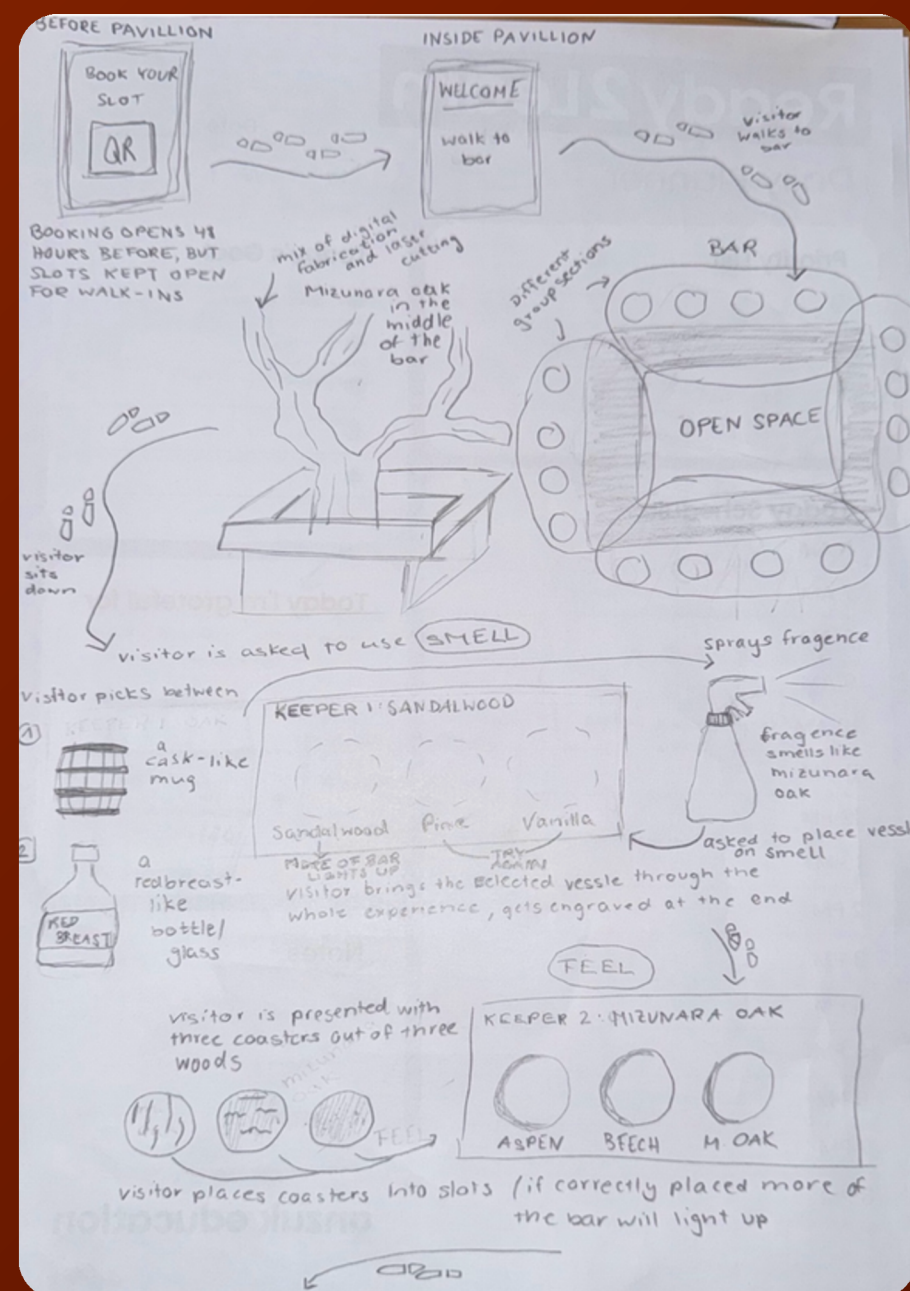 BEFORE PAVILLION
BOOK YOUR
SLOT
QR
BOOKING OPENS 48
HOURS BEFORE, BUT
SLOTS KEPT OPEN
FOR WALK-INS
INSIDE PAVILLION
WELCOME
walk to
bar
visitor
walks to
bar
mix of digital
fabrication
and laser
cutting
Mizunara oak
in the
middle
of the
bar
Different
group sections
BAR
OPEN SPACE
visitor
sits
down
visitor is asked to use SMELL
visitor picks between
1
a
cask-like
mug
2
RED
BREAST
a
redbreast-
like
bottle/
glass
KEEPER 1: SANDALWOOD
Sandalwood Pine Vanilla
MORE OF BAR
LIGHTS UP
TRY
AGAIN
sprays fragence
fragence
smells like
mizunara
oak
asked to place vessl
on smell
visitor brings the selected vessle through the
whole experience, gets engraved at the end
FEEL
visitor is presented with
three coasters out of three
woods
FEEL
KEEPER 2: MIZUNARA OAK
ASPEN BEECH M. OAK
visitor places coasters into slots / if correctly placed more of
the bar will light up